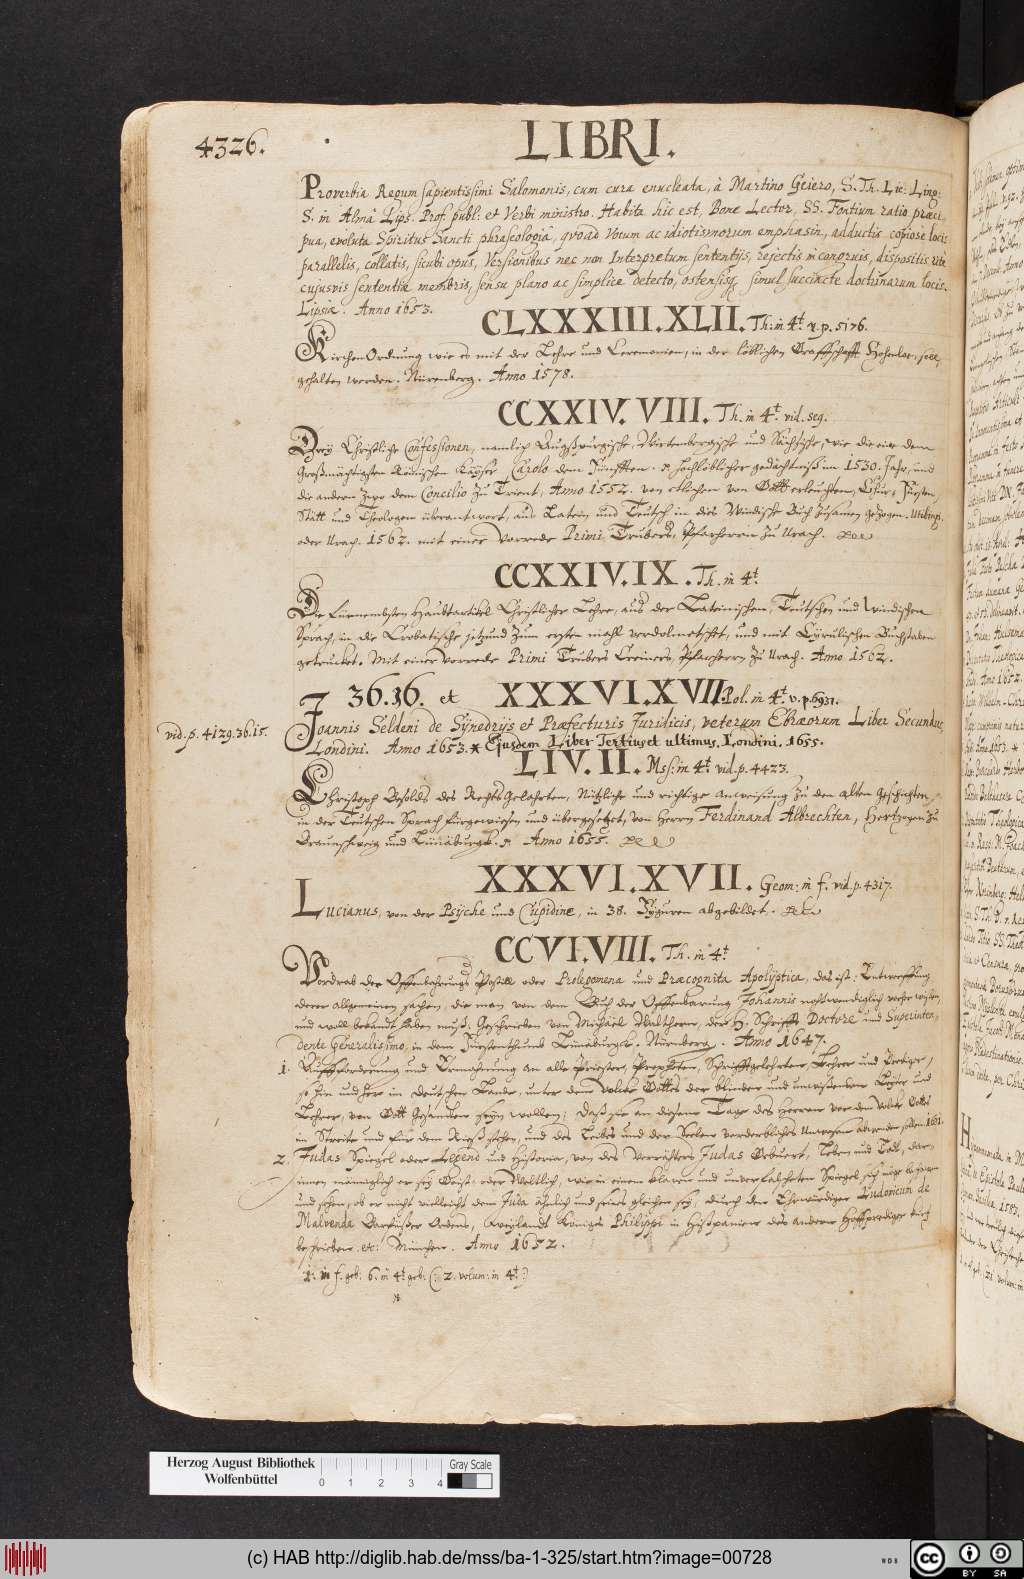 4326.
LIBRI.
Proverbia Regum sapientissimi Salomonis, cum cura enucleata, à Martino Geiero, S. Th. Lic: Ling:
S. in Alma Lips. Prof. publ. et Verbi ministro. Habita hic est, Bone Lector, SS. Fontium ratio præci-
pua, evoluta Spiritus Sancti phraseologiâ, qvoad Vocum ac idiotismorum emphasin, adductis copiose locis
parallelis, collatis, sicubi opus, Versionibus nec non Interpretum sententijs, rejectis incongruis, dispositis rite
cujusvis sententiæ membris, sensu plano ac simplice detecto, ostensisq simul succincte doctrinarum locis.
Lipsiæ. Anno 1653.
CLXXXIII.XLII. Th: in 4t. v. p. 5176.
KirchenOrdnung wie es mit der Lehre und Ceremonien, in der löblichen Graffschafft Hohenloe, soll
gehalten werden. Nürenberg. Anno 1578.
CCXXIV. VIII. Th. in 4t. vid. seq.
Drey Christliche Confessionen, namlich Augspurgische, Wirtenbergische und Sächsische, wie die eine dem
Großmächtigsten Römischen Kayser Carolo dem Fünfften. hochlöblicher gedächtniß im 1530. Jahr, und
die andern Zwo dem Concilio zu Trient, Anno 1552. von etlichen von Gott erleuchten, Chur, Fürsten,
Stätt und Theologen überantwort, aus Latein und Teutsch in dies Windische Buch zusamen gezogen. Tübing.
oder Urach. 1562. mit einer Vorrede Primi Trubers, Pfarherrn zu Urach.
CCXXIV. IX. Th. in 4t.
Die fürnembsten Haubtartikel Christlicher Lehre, aus der Lateinischen, Teutschen und Windischen
Sprach, in die Crobatische jetzund zum ersten mahl verdolmetscht, und mit Cyrulischen Buchstaben
getrucket. Mit einer Vorrede Primi Trubers Creiners, Pfarherrn zu Urach. Anno 1562.
36.16. et XXXVI.XVII. Pol. in 4t. v. p. 6931.
vid. p. 4129.36.15.
Joannis Seldeni de Synedrijs et Præfecturis Juridicis, veterum Ebræorum Liber Secundus,
Londini. Anno 1653. * Ejusdem Liber Tertius et ultimus, Londini, 1655.
LIV. II. Mss: in 4t. vid. p. 4423.
Christoph Besolds des Rechts Gelahrten, Nützliche und richtige Anweisung zu den alten Geschichten,
in der Teutschen Sprach fürgewiesen und übergesetzt, von Herrn Ferdinand Albrechten, Hertzogen zu
Braunschweig und Lünäburgk. Anno 1655.
XXXVI.XVII. Geom: in f. vid. p. 4317.
Lucianus, von der Psyche und Cupidine, in 38. Fyguren abgebildet.
CCVI.VIII. Th. in 4t
Vordrab der Offenbahrungs Postill oder Prolegomena und Præcognita Apolyptica, das ist: Entwerffung
derer allgemeinen sachen, die man von dem Buch der Offenbarung Johannis nothwendiglich vorher wissen,
und woll bekandt haben muß: Geschrieben von Michael Walthern, der H. Schrifft Doctore und Superinten-
dente Generalissimo, in dem Fürstenthumb Lünäburgk. Nürnberg. Anno 1647.
1. Aufforderung und Vermahnung an alle Priester, Propheten, Schrifftgelehrten, Lehrer und Prediger,
so hin und her in Deutschen Lande, unter dem Volcke Gottes der blinden und unwissenden Leyter und
Lehrer, von Gott Gesandten seyn wollen: Daß sie an diesem Tage des Herren vor dem Volcke Gottes
in Streite und für dem Riß stehen, und des Leibes und der Seelen verderbliches Unwesen abwenden sollen. 1651.
2. Judas Spiegel oder Legend und Historia, von des Verräthers Judas Gebuert, Leben und Todt, dar-
innen männiglich er sey Geist- oder Weltlich, wie in einem klaren und unverfälschten Spiegel sich möge besehen
und sehen, ob er nicht villeicht dem Juda ähnlich und seines gleichen sey, durch den Ehrwürdigen Ludovicum de
Malvenda Barfusser Ordens, weylandt Königs Philippi in Hispanien des andern Hoffprediger
beschrieben. etc: München. Anno 1652.
1. in f. geb: 6. in 4t. geb: (: 2. volum: in 4t. :)
Herzog August Bibliothek
Wolfenbüttel
0 1 2 3 4
Gray Scale
(c) HAB http://diglib.hab.de/mss/ba-1-325/start.htm?image=00728
WDB
cc BY SA